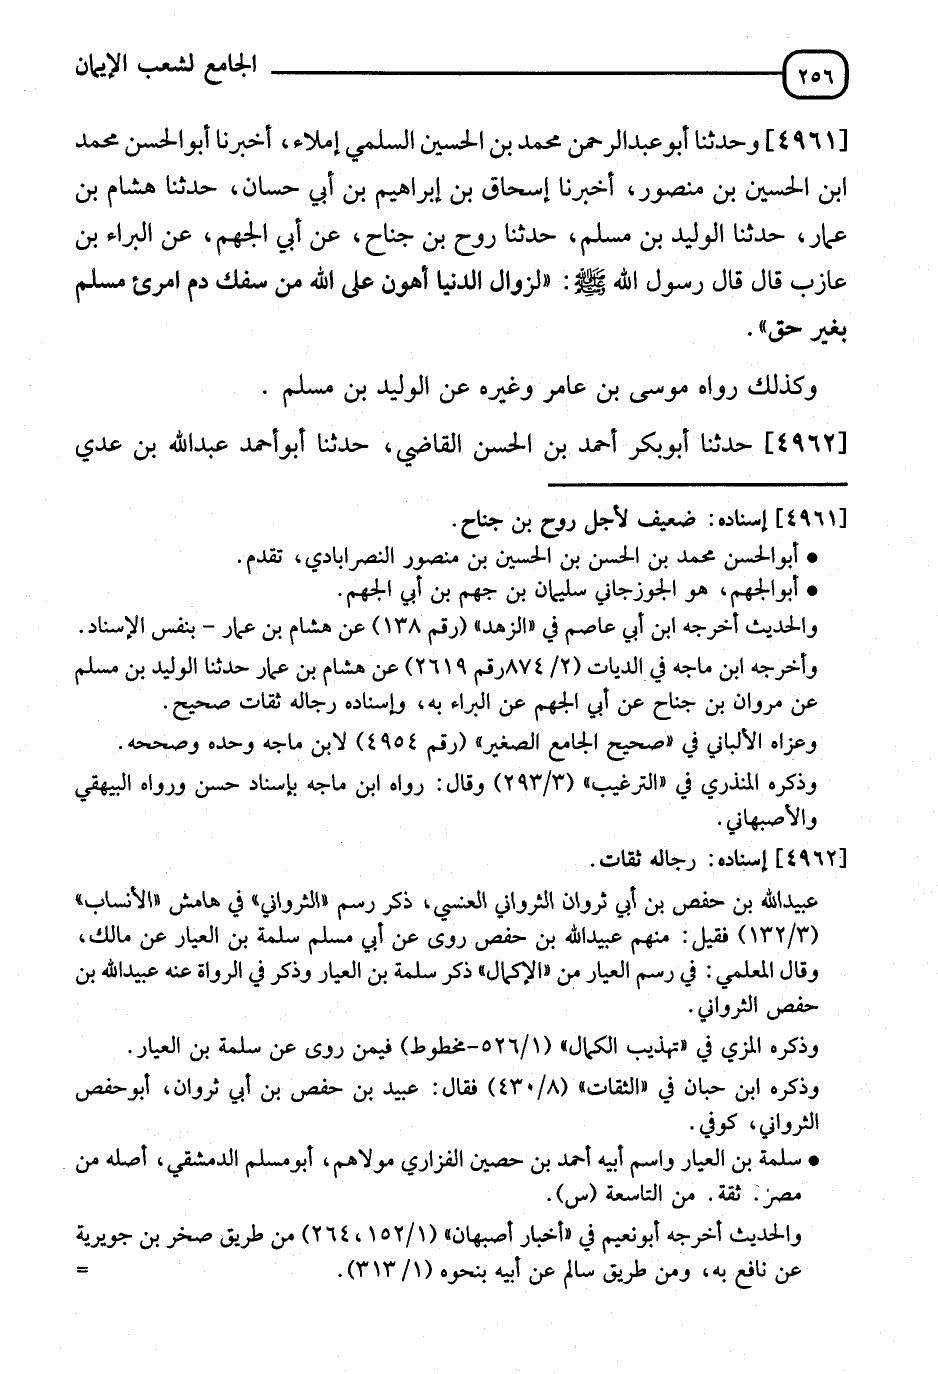 ٢٥٦ الجامع لشعب الإيمان
[٤٩٦١] وحدثنا أبو عبدالرحمن محمد بن الحسين السلمي إملاء، أخبرنا أبوالحسن محمد
ابن الحسين بن منصور، أخبرنا إسحاق بن إبراهيم بن أبي حسان، حدثنا هشام بن
عمار، حدثنا الوليد بن مسلم، حدثنا روح بن جناح، عن أبي الجهم، عن البراء بن
عازب قال قال رسول الله ﷺ: «لزوال الدنيا أهون على الله من سفك دم امرئ مسلم
بغير حق».
وكذلك رواه موسى بن عامر وغيره عن الوليد بن مسلم .
[٤٩٦٢] حدثنا أبوبكر أحمد بن الحسن القاضي، حدثنا أبوأحمد عبدالله بن عدي
[٤٩٦١] إسناده: ضعيف لأجل روح بن جناح.
• أبوالحسن محمد بن الحسن بن الحسين بن منصور النصرابادي، تقدم.
• أبوالجهم، هو الجوزجاني سليمان بن جهم بن أبي الجهم.
والحديث أخرجه ابن أبي عاصم في «الزهد» (رقم ١٣٨) عن هشام بن عمار – بنفس الإسناد.
وأخرجه ابن ماجه في الديات (٢/ ٨٧٤رقم ٢٦١٩) عن هشام بن عمار حدثنا الوليد بن مسلم
عن مروان بن جناح عن أبي الجهم عن البراء به، وإسناده رجاله ثقات صحيح.
وعزاه الألباني في «صحيح الجامع الصغير» (رقم ٤٩٥٤) لابن ماجه وحده وصححه.
وذكره المنذري في «الترغيب» (٢٩٣/٣) وقال: رواه ابن ماجه بإسناد حسن ورواه البيهقي
والأصبهاني.
[٤٩٦٢] إسناده: رجاله ثقات.
عبيدالله بن حفص بن أبي ثروان الثرواني العنسي، ذكر رسم «الثرواني» في هامش «الأنساب»
(١٣٢/٣) فقيل: منهم عبيدالله بن حفص روى عن أبي مسلم سلمة بن العيار عن مالك،
وقال المعلمي: في رسم العيار من «الإكمال» ذكر سلمة بن العيار وذكر في الرواة عنه عبيدالله بن
حفص الثرواني.
وذكره المزي في «تهذيب الكمال» (٥٢٦/١-مخطوط) فيمن روى عن سلمة بن العيار.
وذكره ابن حبان في «الثقات» (٤٣٠/٨) فقال: عبيد بن حفص بن أبي ثروان، أبوحفص
الثرواني، كوفي.
• سلمة بن العيار واسم أبيه أحمد بن حصين الفزاري مولاهم، أبومسلم الدمشقي، أصله من
مصر. ثقة. من التاسعة (س).
والحديث أخرجه أبونعيم في «أخبار أصبهان» (١٥٢/١، ٢٦٤) من طريق صخر بن جويرية
عن نافع به، ومن طريق سالم عن أبيه بنحوه (١/ ٣١٣). =